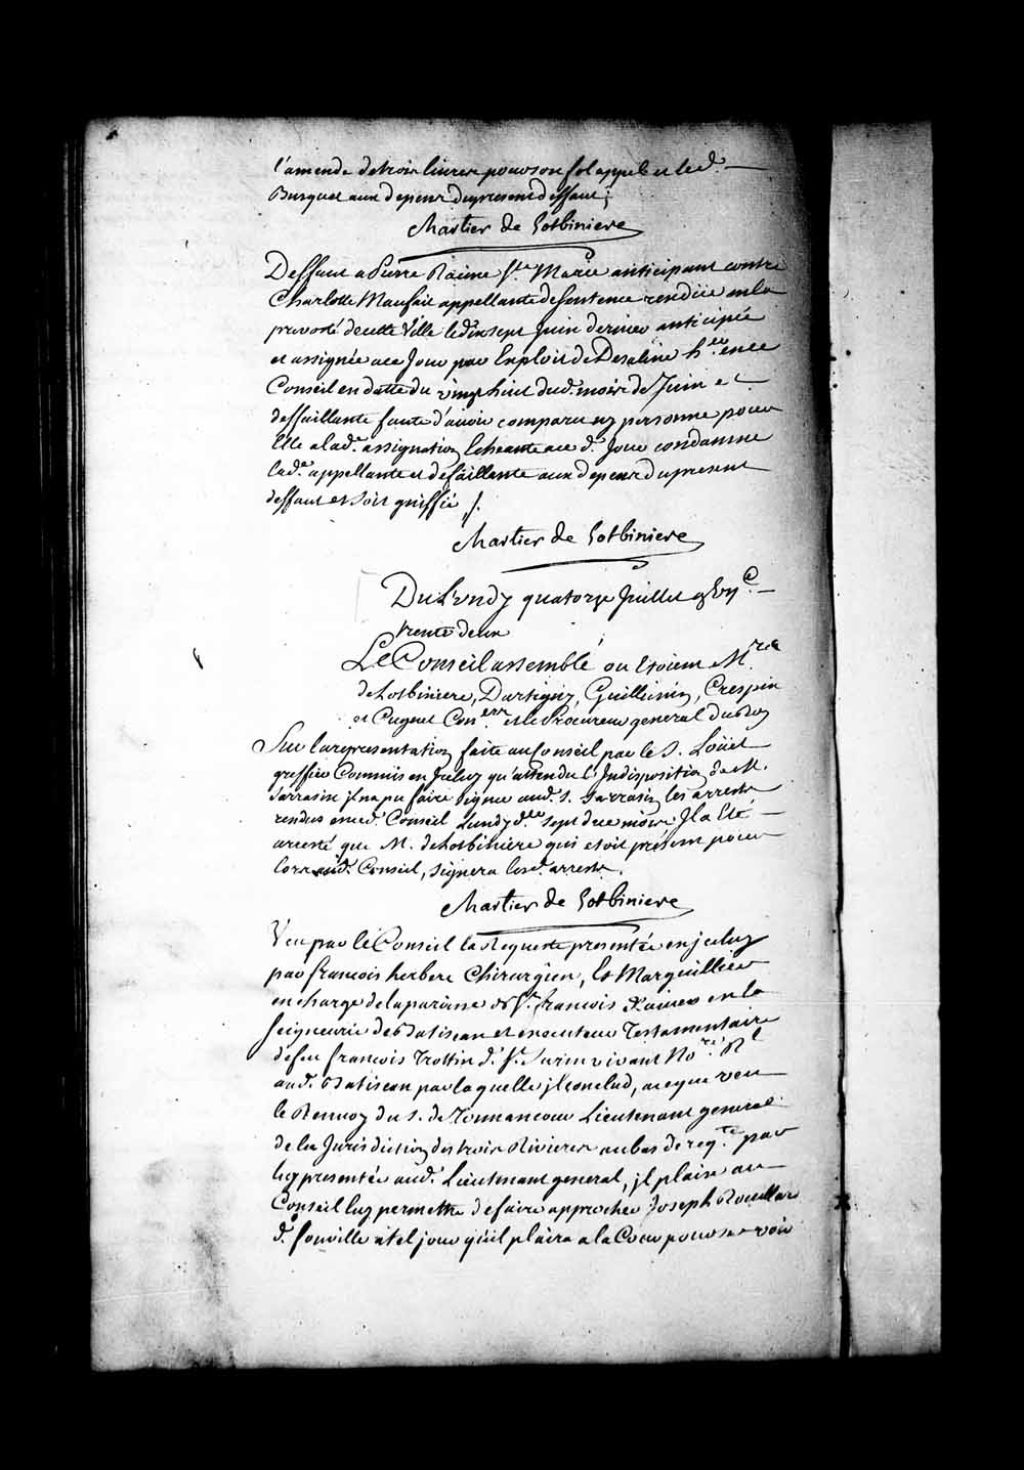 l'amende de trois livres pour son fol appel et led.
Busquet aux depens du present deffaut;
Chartier de Lotbiniere
Deffaut a Pierre Raime Ste Marie anticipant contre
Charlotte Maufait appellante de sentence rendüe en la
prevosté de cette Ville le dix sept Juin dernier anticipée
et assignée a ce Jour par Exploit de Desaline her en ce
Conseil en datte du vingt huit dud. mois de Juin et
deffaillante faute d'avoir comparu ny personne pour
Elle a lad. assignation Echeante a ce d. Jour condamne
lad.e appellante et defaillante aux depens du present
deffaut et soit griffié ./.
Chartier de Lotbiniere
Du Lundy quatorze Juillet gbiiC.
trente deux
Le Conseil assemblé ou Etoient Mres
de Lotbiniere, Dartigny, Guillimin, Crespin
et Cugnet Coners et le Procureur general du Roy
Sur la representation faite au Conseil par le S. Loüet
greffier Commis en Jceluy qu'attendu l'Indisposition de M.
Sarrasin jl na pu faire signer aud. S. Sarrasin les arrests
rendus en ced. Conseil Lundy d.er sept du ce mois Jl a Eté
arresté que M. de Lotbiniere qui etoit présent pour
lors aud. Conseil, signera lesd. arrests.
Chartier de Lotbiniere
Veu par le Conseil la Requeste presentée en jceluy
par francois herbere Chirurgien, Et Marguillier
en charge de la paroisse de St. francois Xavier en la
seigneurie de Batiscan et executeur Testamentaire
de feu francois Trottin d. St. Surin vivant Nore. Rl
aud. Batiscan par laquelle jl conclud, a ce que veu
le Renvoy du S. de Tonnancour Lieutenant general
de la Jurisdiction des trois Rivieres au bas de reqte. par
luy presentée aud. Lieutenant general, jl plaise au
Conseil luy permettre de faire approcher Joseph Rouillar
d. fonville a tel jour qu'il plaira a la Cour pour se voir